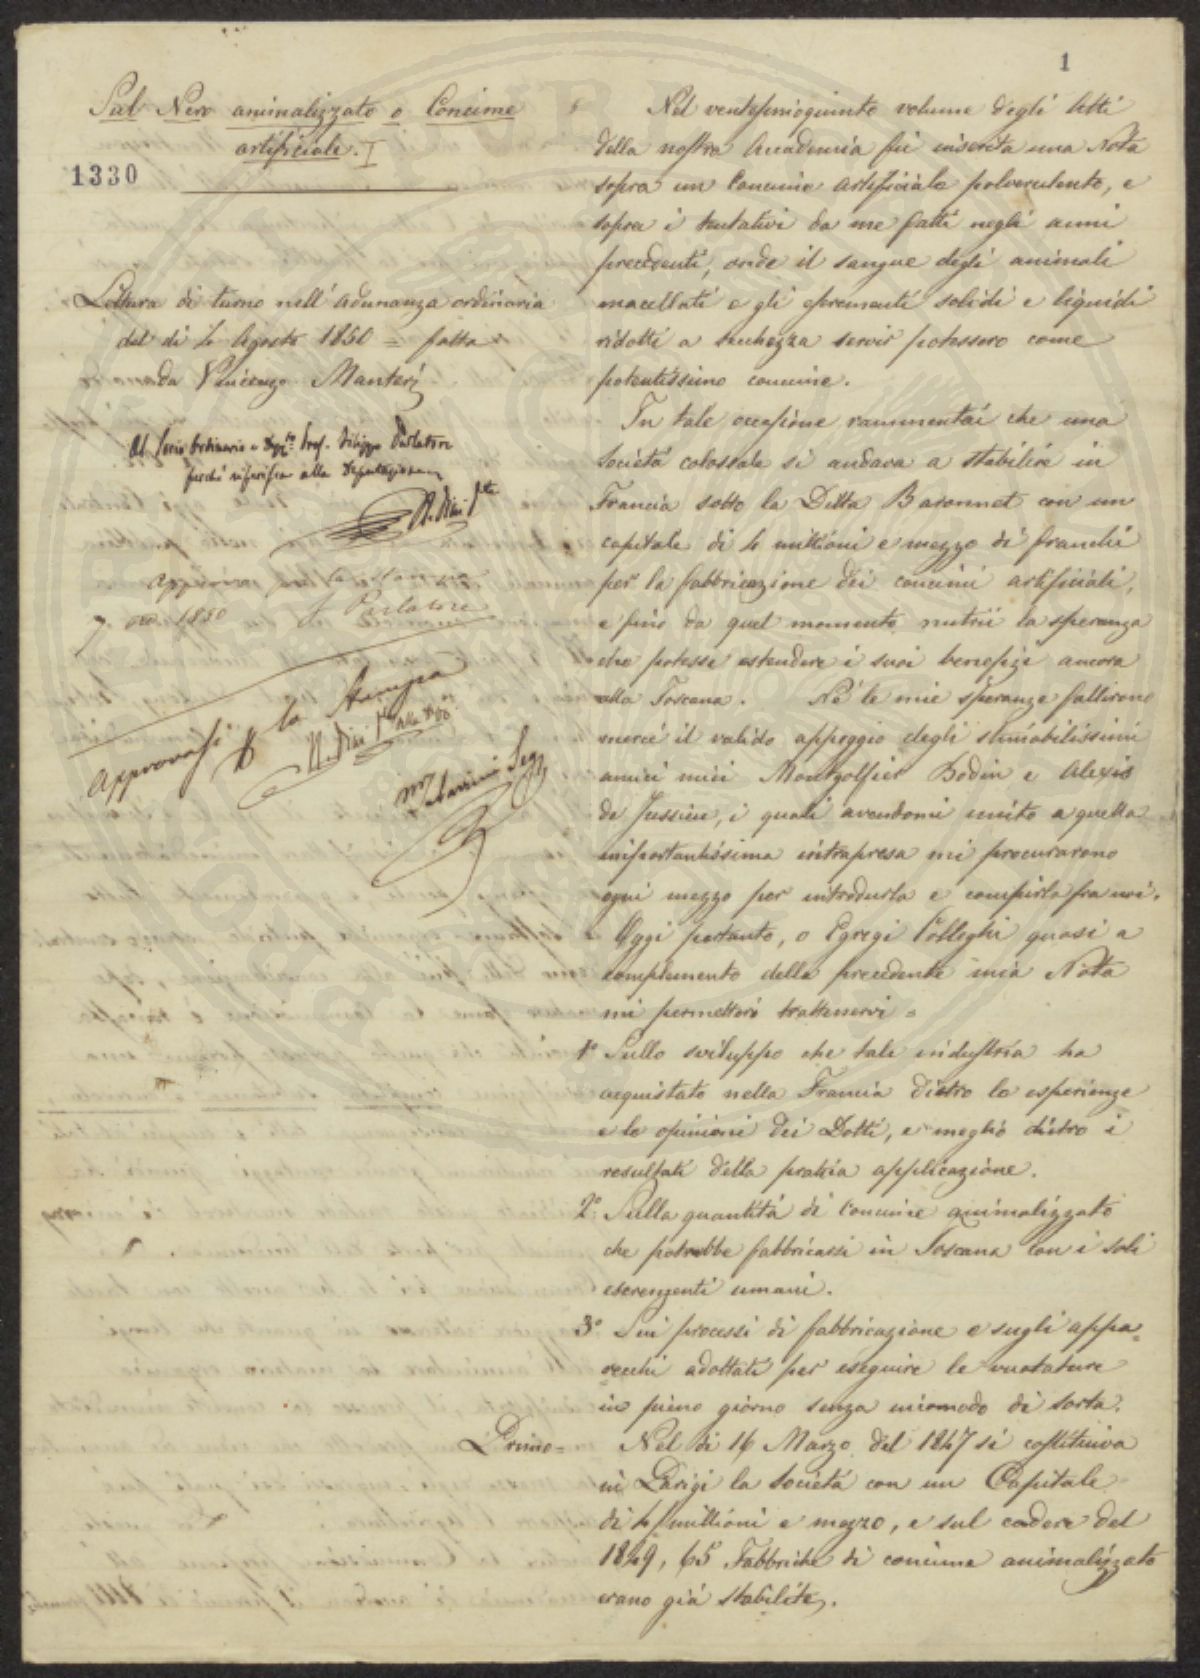 1
Sul Nero animalizzato o Concime
artificiale. I
1330
Lettura di turno nell' adunanza ordinaria
del dì 4 Agosto 1850 = fatta
da Vincenzo Manteri
Al Socio Ordinario e Prof. Filippo Parlatore
perchè riferisca alla Deputazione
approva per la stampa
7 1850 F Parlatore
Approvasi per la Stampa
Segr
Nel ventesimoquinto volume degli Atti
della nostra Accademia fù inserita una Nota
sopra un Concime artificiale polverulento, e
sopra i tentativi da me fatti negli anni
precedenti, onde il sangue degli animali
macellati e gli escrementi solidi e liquidi
ridotti a secchezza servir potessero come
potentissimo concime.
In tale occasione rammentai che una
Società colossale si andava a stabilire in
Francia sotto la Ditta Baronnet con un
capitale di 4 millioni e mezzo di franchi
per la fabbricazione dei concimi artificiali,
e fino da quel momento nutrii la speranza
che potesse estendere i suoi benefizi ancora
alla Toscana. Nè le mie speranze fallirono
mercè il valido appoggio degli stimabilissimi
amici miei Montgolfier Bodin e Alexis
de Jussieu, i quali avendomi unito a quella
importantissima intrapresa mi procurarono
ogni mezzo per introdurla e compirla fra noi.
Oggi pertanto, o Egregi Colleghi quasi a
complemento della precedente mia Nota
mi permetterò trattenervi =
1° Sullo sviluppo che tale industria ha
acquistato nella Francia dietro le esperienze
e le opinioni dei Dotti, e meglio dietro i
resultati della pratica applicazione.
2° Sulla quantità di Concime animalizzato
che potrebbe fabbricarsi in Toscana con i soli
escrementi umani.
3° Sui processi di fabbricazione e sugli appa=
recchi adottati per eseguire le vuotature
in pieno giorno senza incomodo di sorta.
Primo= Nel dì 16 Marzo del 1847 si costituiva
in Parigi la Società con un Capitale
di 4 millioni e mezzo, e sul cadere del
1849, 65 Fabbriche di concime animalizzato
erano già stabilite.